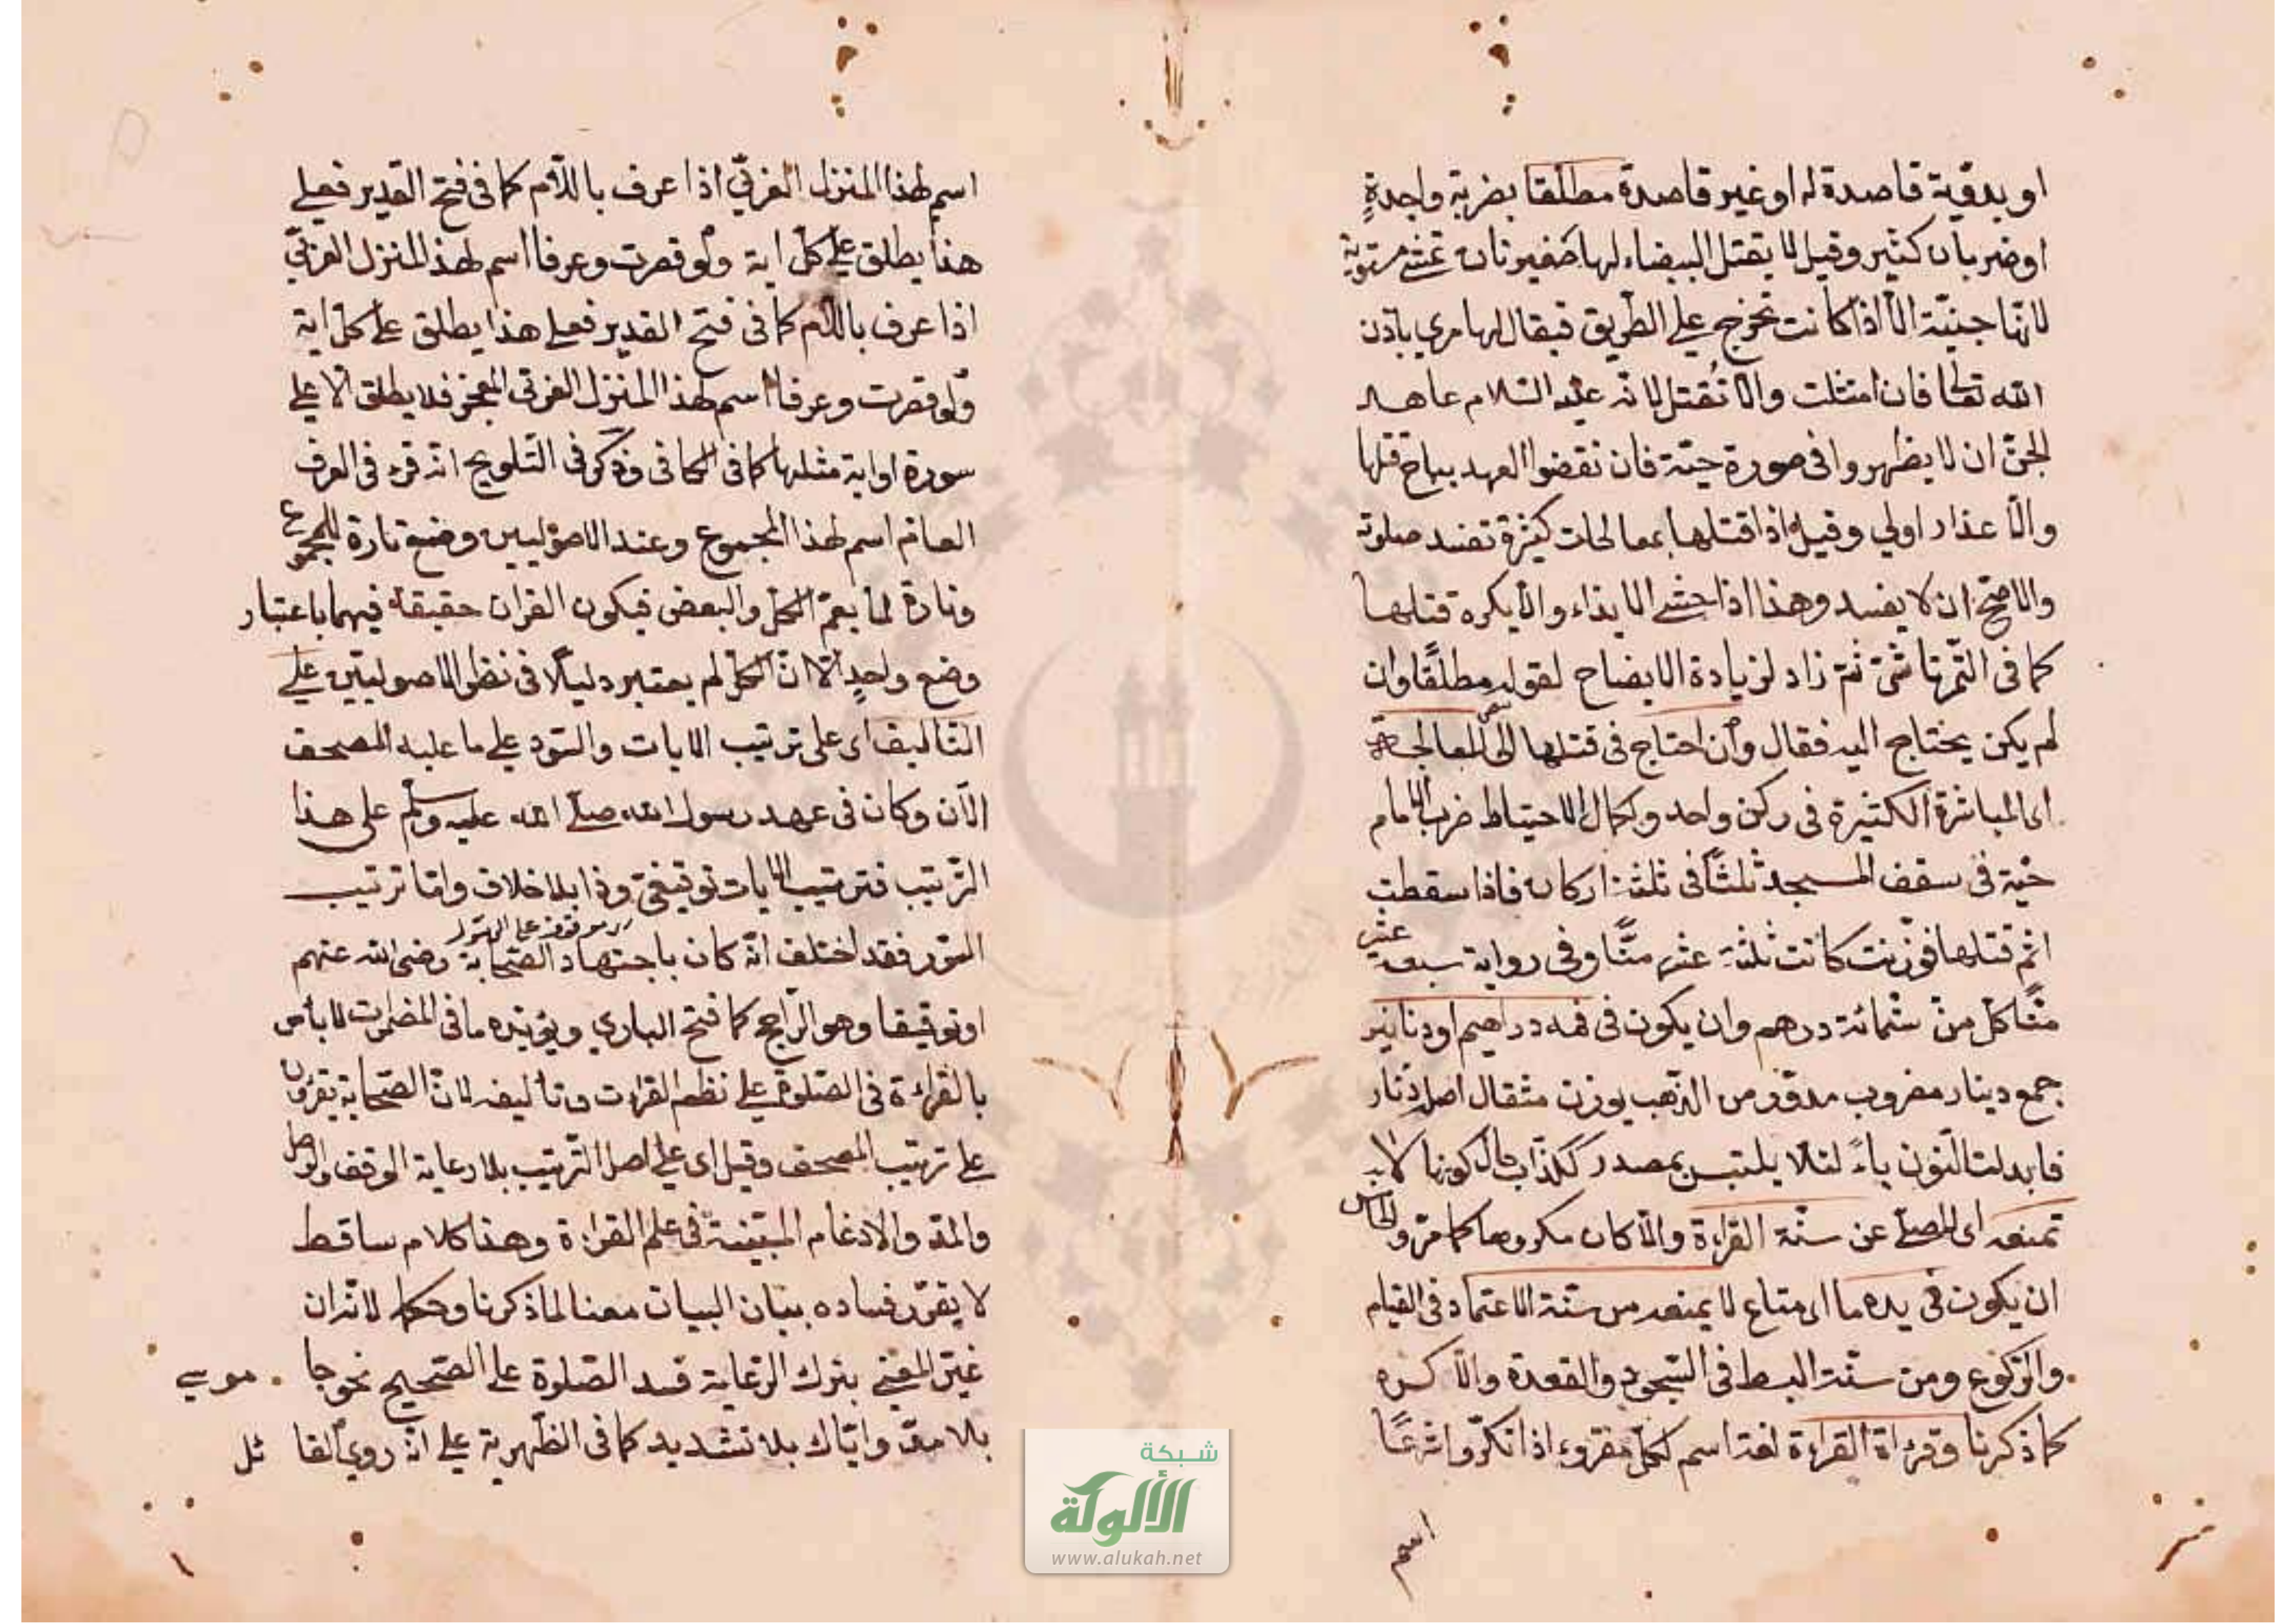 او بدقية قاصدة له او غير قاصدة مطلقا بضربة واحدةٍ
او ضربات كثير وقيل لا يقتل البيضاء لها ضفيرتان تمشي مستوية
لانها جنيّة الّا اذا كانت تخرج على الطريق فيقال لها مري باذن
الله تعالى فان امتثلت والّا تُقتل لانه عليه السّلام عاهد
الجنّ ان لا يظهروا في صورة حيّة فان نقضوا العهد يباح قتلها
والاعذار اولي وقيل اذا قتلها بمعالجات كثيرة تفسد صلوته
والاصحّ ان لا يفسد وهذا اذا خشي الايذاء والّا يكره قتلها
كما في التّمرتاشيّ ثم زاد لزيادة الايضاح لقوله مطلقًا وان
لم يكن يحتاج اليه فقال وان احتاج في قتلها الى المعالجة
اى المباشرة الكثيرة في ركن واحد ولكمال الاحتياط ضرب الامام
حيّة في سقف المسجد ثلثًا في ثلثة اركان فاذا سقطت
اثم قتلها فوزنت كانت ثلثة عشر منًّا وفي رواية سبعة عشر
منًّا كل منّ ستمائة درهم وان يكون في فمه دراهيم او دنانير
جمع دينار مضروب مدوّر من الذهب يوزن مثقال اصله دنار
فابدلت النّون ياءً لئلا يلتبس بمصدر ككذّاب حال كونها لا
تمنعه اى المصلّي عن سنّة القراءة والّا كان مكروها كما مرّ و
ان يكون في يده ما اى متاع لا يمنعه من سنّة الاعتماد في القيام
والرّكوع ومن سنّة البسط في السّجود والقعدة والّا كره
كما ذكرنا وقراءة القراءة لغة اسم لكلّ مقروء اذا نكّر وشرعًا
اسم
اسم لهذا المنزل العربيّ اذا عرف باللّام كما في فتح القدير فعلى
هذا يطلق على كلّ اية ولو قصرت وعرفا اسم لهذ المنزل العربيّ
اذا عرف باللّام كما في فتح القدير فعلى هذا يطلق على كلّ اية
ولو قصرت وعرفا اسم لهذ المنزل العربيّ المعجز فلا يطلق الّا على
سورة او اية مثلها كما في الكافي وذكر في التّلويح انّه قرء في العرف
العام اسم لهذا المجموع وعند الاصوليين وضع تارة للمجموع
وتارة لما يعمّ الكلّ والبعض فيكون القران حقيقة فيهما باعتبار
وضع واحدٍ الّا انّ الكلّ لم يعتبر دليلًا في نظر الاصوليّين على
التّاليف اى على ترتيب الايات والسّور على ما عليه المصحف
الآن وكان في عهد رسول الله صلّى الله عليه وسلّم على هذا
التّرتيب فترتيب الايات توقيفيّ وذا بلا خلاف وامّا ترتيب
السّور فقد اختلف انّه كان باجتهاد الصّحابة رضى الله عنهم
او توقيفا وهو الرّاجح كما فتح الباري ويؤيّده ما في المضمرات لا باس
بالقراءة في الصّلوة على نظم القران وتأليفه لانّ الصّحابة يقرؤن
على ترتيب المصحف وقيل اى على اصل التّرتيب بلا رعاية الوقف والوصل
والمدّ والادغام المبيّنة في علم القراءة وهذا كلام ساقط
لا يقرّر فساده ببنان البيان معنا لما ذكرنا وحكما لانّه ان
غيّر المعنى بترك الرّعاية فسد الصّلوة على الصّحيح نحو جا
بلا مدّ وايّاك بلا تشديد كما في الظّهرية على انّه روي القا
شبكة
الألوكة
www.alukah.net